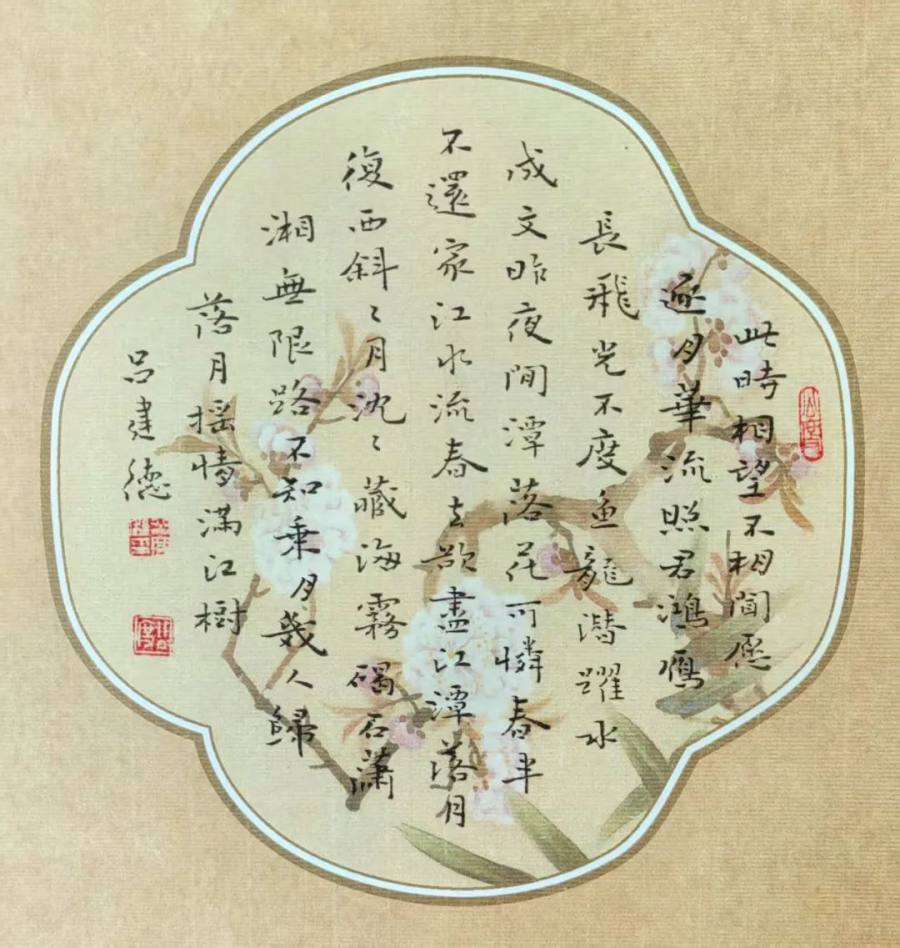 此時相望不相聞愿
逐月華流照君鴻鴈
長飛光不度魚龍潛躍水
成文昨夜閒潭落花可憐春半
不還家江水流春去欲盡江潭落月
復西斜〻月沈〻藏海霧碣石瀟
湘無限路不知乘月幾人歸
落月搖情滿江樹
呂建德